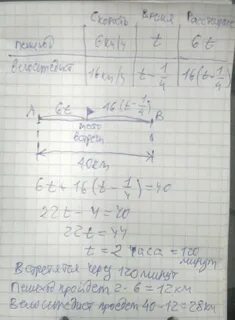 Скорость Время Расстояние
пешеход 6км/ч t 6t
велосипедист 16км/ч t-1/4 16(t-1/4)
6t 16(t-1/4)
A B
место
встречи
40км
6t+16(t-1/4)=40
22t-4=40
22t=44
t=2 часа=120
минут
Встретятся через 120 минут
Пешеход пройдет 2·6=12км
Велосипедист проедет 40-12=28км